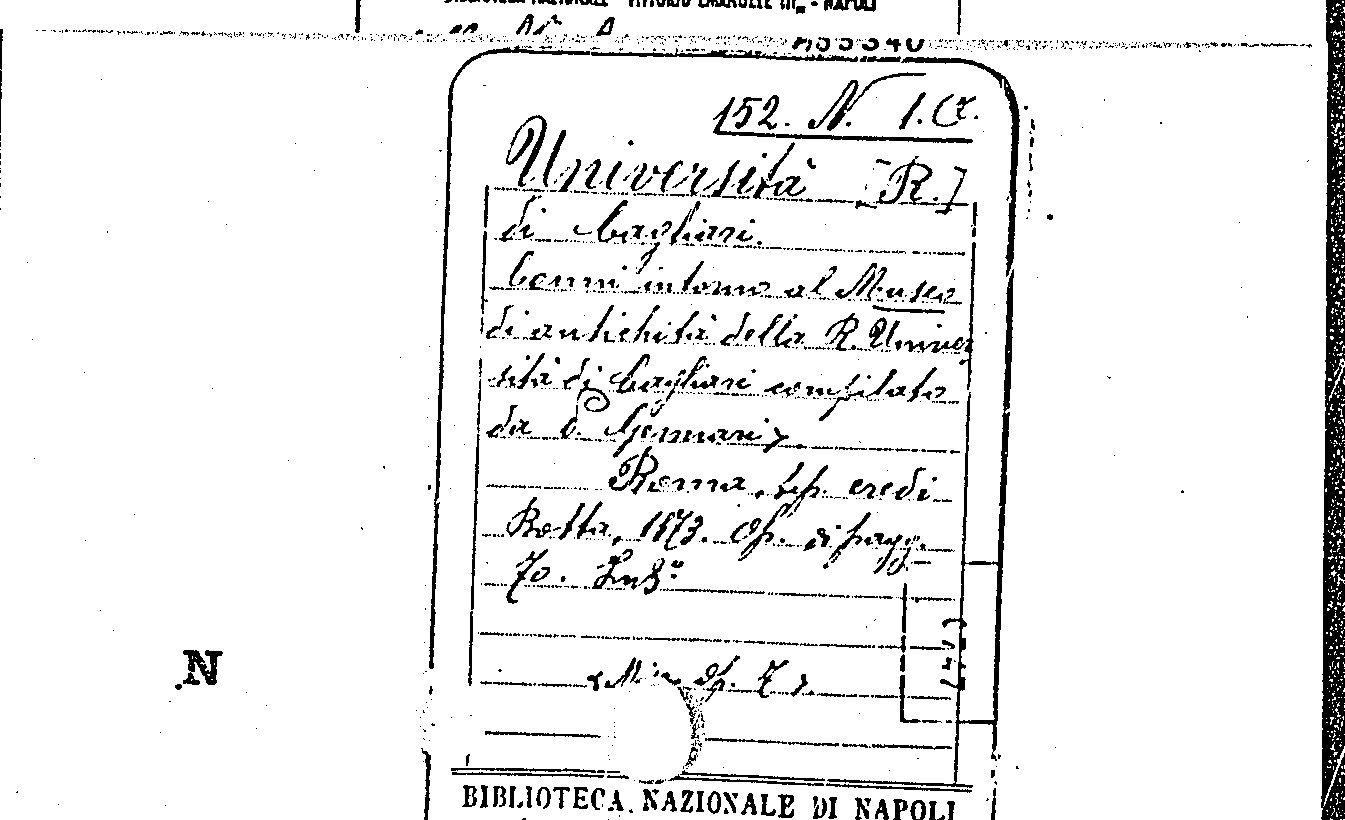 BIBLIOTECA NAZIONALE "VITTORIO EMANUELE III" - NAPOLI
A55340
152. N. 1. G.
Università [R.]
di Cagliari.
Cenni intorno al Museo
di antichità della R. Univer
sità di Cagliari compilato
da P. Gennari.
Roma, tip. eredi
Botta, 1873. Op. di pagg.
70. In 8º
Op. 7
N
BIBLIOTECA NAZIONALE DI NAPOLI